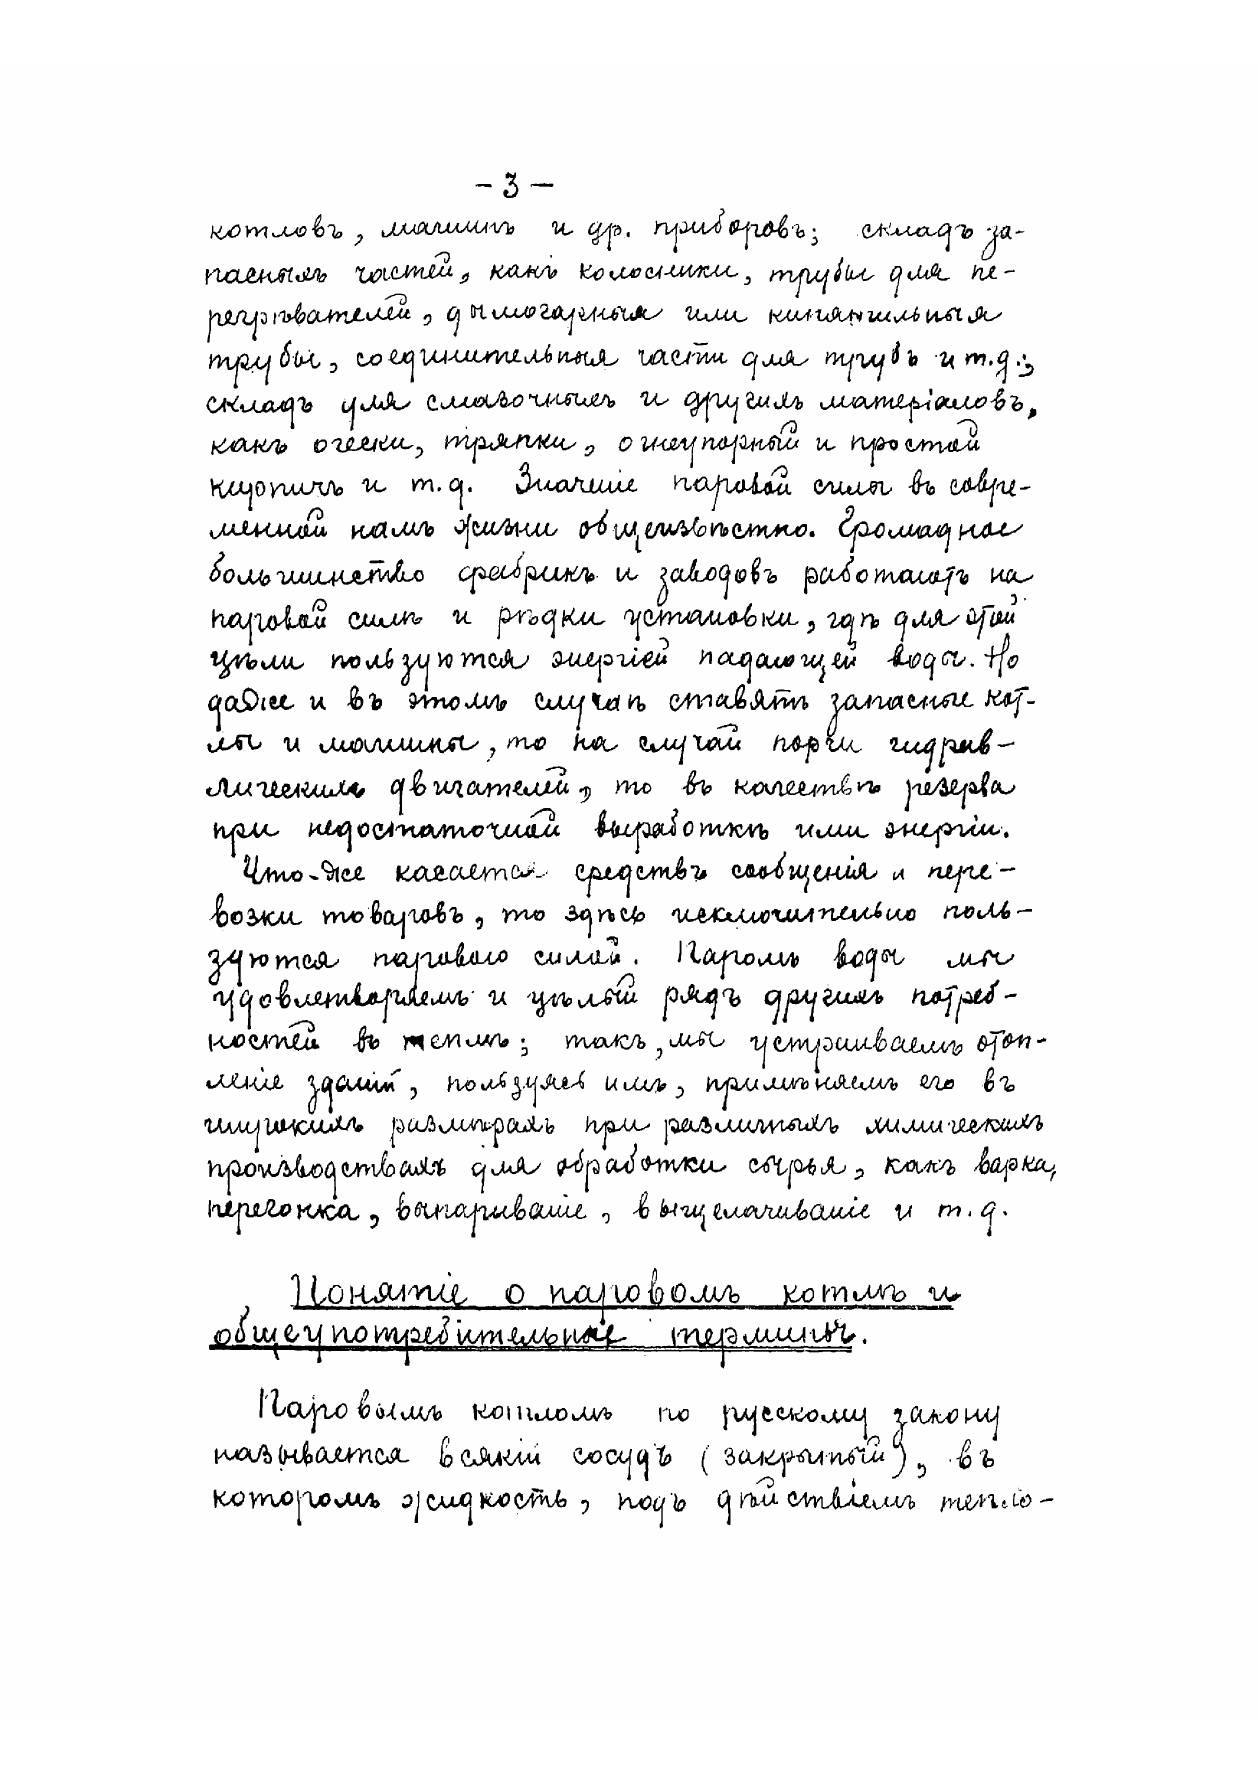 - 3 -
котловъ, машинъ и др. приборовъ; складъ за-
пасныхъ частей, какъ колосники, трубы для пе-
регрѣвателей, дымогарныя или кипятильныя
трубы, соединительныя части для трубъ и т.д.;
складъ для смазочныхъ и другихъ матеріаловъ,
какъ очески, тряпки, огнеупорный и простой
кирпичъ и т.д. Значеніе паровой силы въ совре-
менной намъ жизни общеизвѣстно. Громадное
большинство фабрикъ и заводовъ работаютъ на
паровой силѣ и рѣдки установки, гдѣ для этой
цѣли пользуются энергіей падающей воды. Но
даже и въ этомъ случаѣ ставятъ запасные кот-
лы и машины, то на случай порчи гидрав-
лическихъ двигателей, то въ качествѣ резерва
при недостаточной выработкѣ ими энергіи.
Что-же касается средствъ сообщенія и пере-
возки товаровъ, то здѣсь исключительно поль-
зуются паровою силой. Паромъ воды мы
удовлетворяемъ и цѣлый рядъ другихъ потреб-
ностей въ теплѣ; такъ, мы устраиваемъ отоп-
леніе зданій, пользуясь имъ, примѣняемъ его въ
широкихъ размѣрахъ при различныхъ химическихъ
производствахъ для обработки сырья, какъ варка,
перегонка, выпариваніе, выщелачиваніе и т.д.
Понятіе о паровомъ котлѣ и
общеупотребительные термины.
Паровымъ котломъ по русскому закону
называется всякій сосудъ (закрытый), въ
которомъ жидкость, подъ дѣйствіемъ тепло-